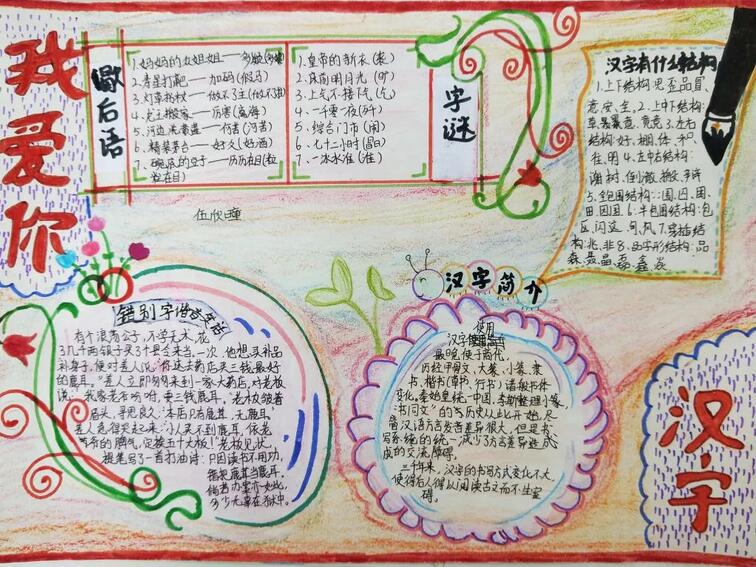 我爱你
歇后语
1.妈妈的女姐姐——多姨(多疑)
2.寿星打靶——加码(假马)
4.龙王搬家——厉害(离海)
5.河边洗青蛙——何苦(河苦)
6.精装茅台——好久(好酒)
7.碗底的豆子——历历在目(粒
粒在目)
字谜
1.皇帝的新衣(袭)
2.床前明月光(旷)
3.上气不接下气(乞)
4.一千零一夜(歼)
5.综合门市(闹)
6.七十二小时(晶)
7.一冰水准(淮)
汉字有什么结构
1.上下结构:思歪品冒
意安全
2.上中下结构:
草暴意竟竞
3.左右
结构:好棚体和
往明
4.左中右结构:
谢树倒搬辩
5.全包围结构:围囚困
田因国
6.半包围结构:包
区闪这句风
7.穿插结
构:兆非
8.品字形结构:品
森聂晶磊鑫焱
伍欣曈
错别字谐音笑话
有个浪荡公子,不学无术,花
了几千两银子买了个县令来当。一次,他想买补品
补身子,便对差人说:“你这去药店买三钱最好
的鹿耳。”差人立即匆匆来到一家大药店,对老板
说:“我家老爷吩咐,要三钱鹿耳。”老板皱着
眉头,寻思良久:“本店只有鹿茸,无鹿耳。”
差人急得哭起来:“小人买不到鹿耳,依老
爷爷的脾气,定挨五十大板!”老板见状,
提笔写了一首打油诗:“只因读书不用功,
错把鹿茸当鹿耳,
倘若办案亦如此,
多少无辜在狱中。
汉字简介
使用
汉字
最晚使于商代,
历经甲骨文、大篆、小篆、隶
书、楷书(草书、行书)诸般书体
变化。秦始皇统一中国,李斯整理小篆,
“书同文”的历史从此开始。尽
管汉语方言发音差异很大,但是书
写系统的统一减少了方言差异造成
成的交流障碍。
三千年来,汉字的书写方式变化不大,
使得后人得以阅读古文而不生窒
碍。
汉字